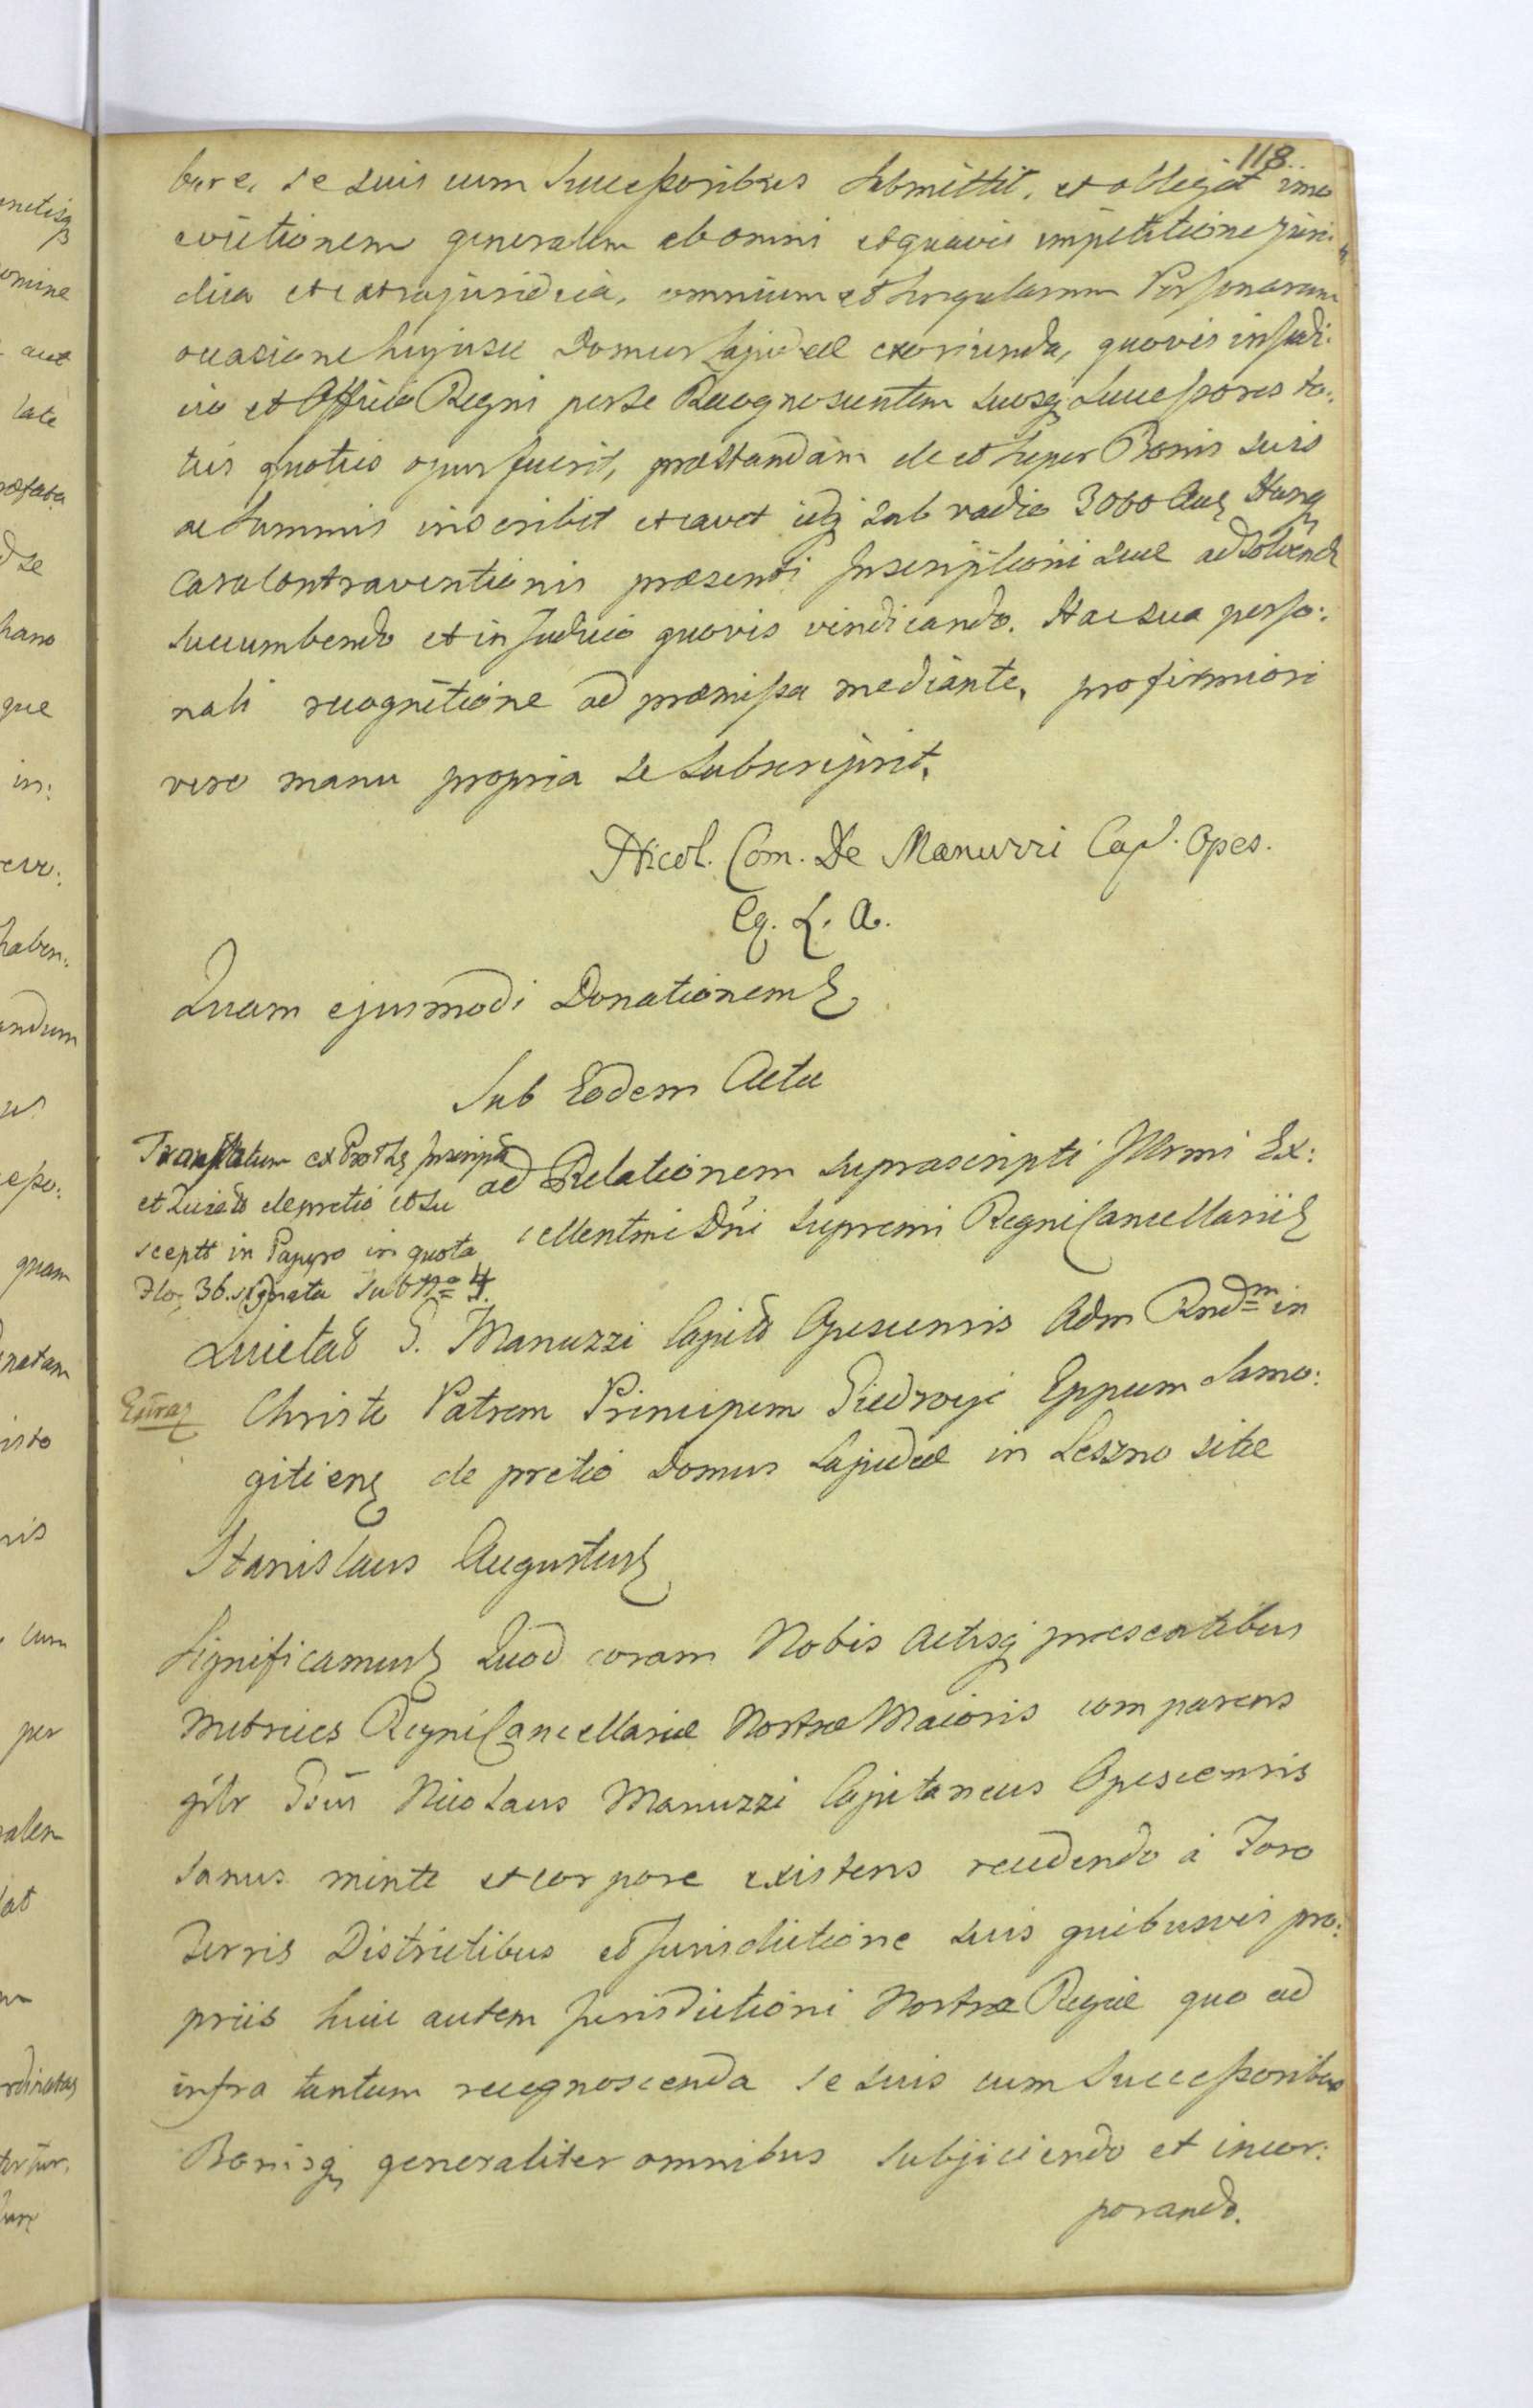 118.
bere, se suis cum Successoribus submittit, et obligat imo
evictionem generalem ab omni et quavis impetitione juri:
dica et extrajuridica, omnium et singularum Personarum
occasione hujusce Domus Lapideæ exoriunda, quovis in Judi:
cio et Officio Regni per se Recognoscentem suosq; Successores to:
ties quoties opus fuerit, præstandam de et super Bonis suis
ac summis inscribit et cavet idq; sub vadio 3000 Aur Hung
casu contraventionis præsenti Inscriptioni suæ adsolvendi
succumbendo et in Judicio quovis vindicando. Hac sua perso:
nali recognitione ad præmissa mediante, pro firmiori
vero manu propria se subscripsit.
Nicol. Com. De Manuzzi Cap. Opes.
Eq. L. A.
Quam ejusmodi Donationem
Sub Eodem Actu
Translatum ex Proth Inscript
et Quietõ de pretio et su
scepto in Papyro in quota
Flor 36. signata sub Nro 4.
ad Relationem suprascripti Illrmi Ex:
cellentmi Dni Supremi Regni Cancellarii
Quietaõ G. Manuzzi Capitõ Opescensis Adm Rndm in
Extrag
Christo Patrem Principem Giedroyć Eppum Samo:
gitien de pretio Domus Lapideæ in Leszno sitæ
Stanislaus Augustus
Significamus Quod coram Nobis Actisq; præsentibus
Metrices Regni Cancellariæ Nostræ Maioris comparens
pslr Gsus Nicolaus Manuzzi Capitaneus Opescensis
sanus mente et corpore existens recedendo à Foro
Terris Districtibus et Jurisdictione suis quibusvis pro:
priis huic autem Jurisdictioni Nostræ Regiæ quo ad
infra tantum recognoscenda se suis cum Successoribus
Bonisq; generaliter omnibus subjiciendo et incor:
porando.